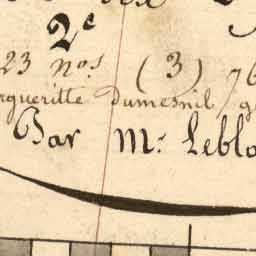 2e
23 nos. (3) 76
rgueritte dumesnil
Par Mr. Lebl